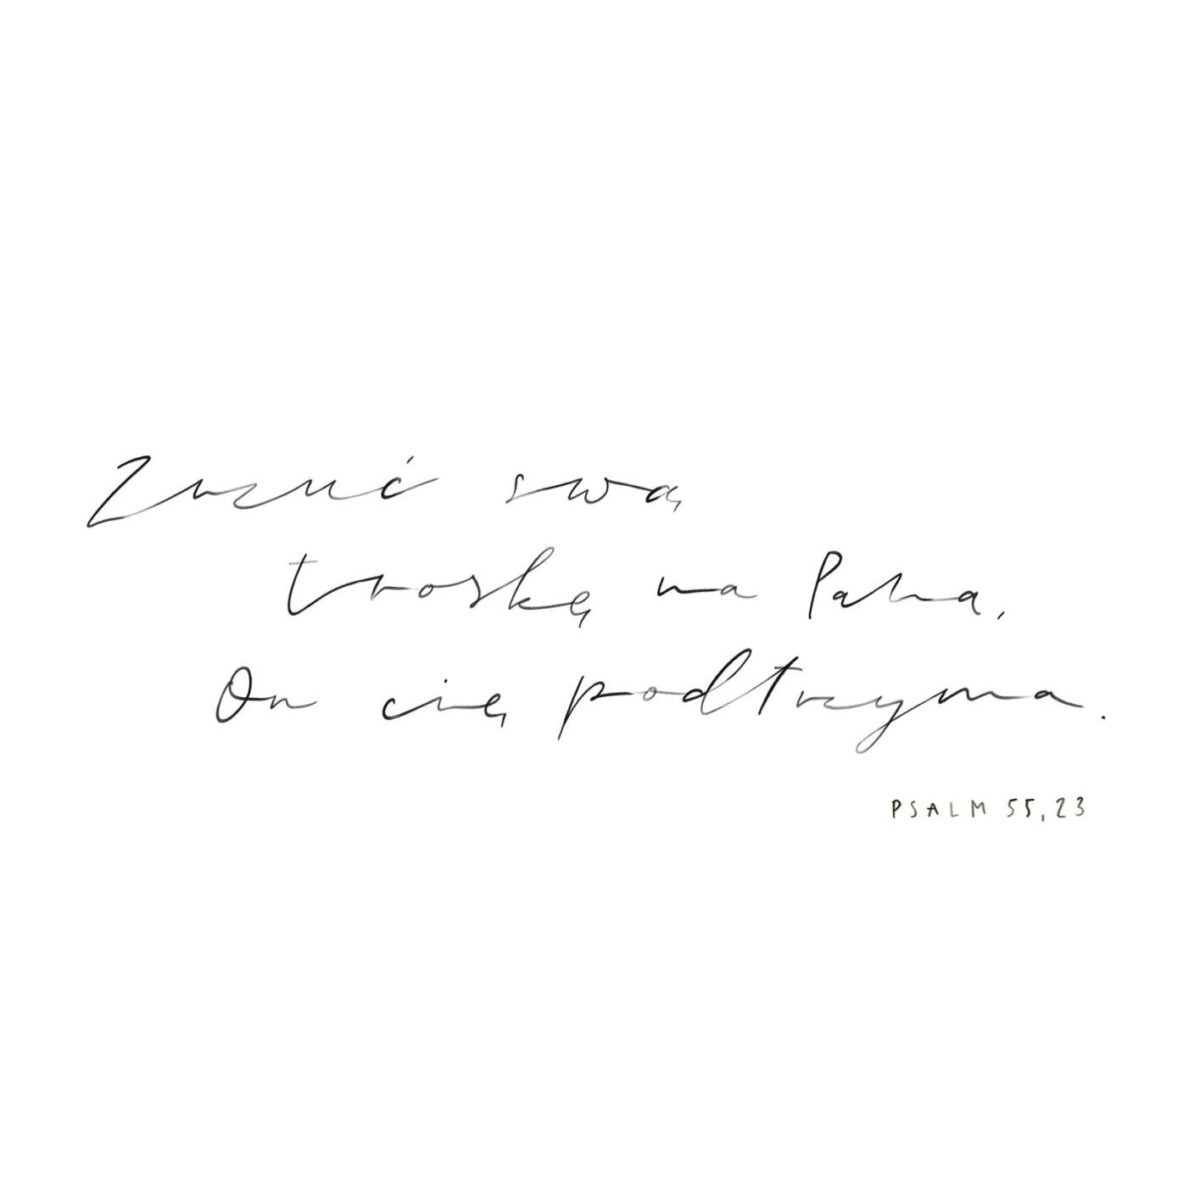 Zrzuć swą
troskę na Pana,
On cię podtrzyma.
PSALM 55,23